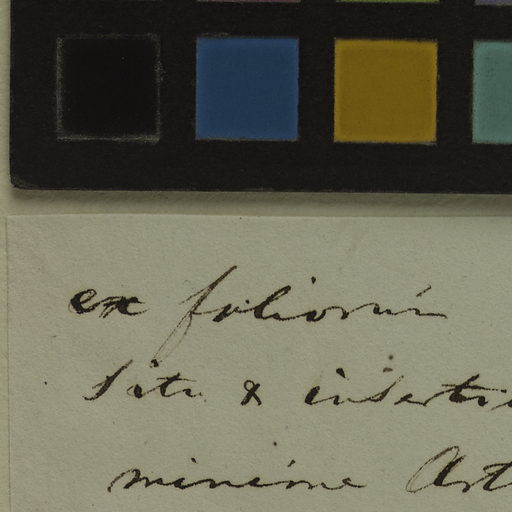 ex foliorum
situ & inserti
minime Art